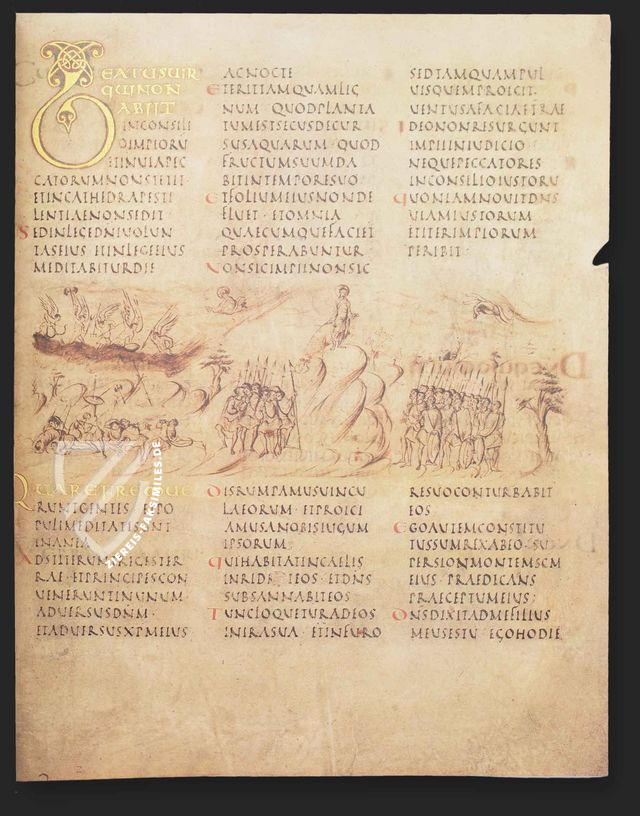 BEATUSUIR
QUINON
ABIIT
INCONSILI
OIMPIORU
ETINUIAPEC
CATORUMNONSTETIT
ETINCATHEDRAPESTI
LENTIAENONSEDIT
SEDINLEGEDNIUOLUN
TASEIUS ETINLEGEEIUS
MEDITABITURDIE
ACNOCTE
ETERITTAMQUAMLIG
NUM QUODPLANTA
TUMESTSECUSDECUR
SUSAQUARUM QUOD
FRUCTUMSUUMDA
BITINTEMPORESUO
ETFOLIUMEIUSNONDE
FLUET ETOMNIA
QUAECUMQUEFACIET
PROSPERABUNTUR
NONSICIMPIINONSIC
SEDTAMQUAMPUL
UISQUEMPROICIT
UENTUSAFACIETERRAE
IDEONONRESURGUNT
IMPIIINIUDICIO
NEQUEPECCATORES
INCONSILIOIUSTORU
QUONIAMNOUITDNS
UIAMIUSTORUM
ETITERIMPIORUM
PERIBIT
QUAREFREMUE
RUNTGENTES ETPO
PULIMEDITATISUNT
INANIA
ADSTITERUNTREGESTER
RAE ETPRINCIPESCON
UENERUNTINUNUM
ADUERSUSDNM
ETADUERSUSXPMEIUS
DISRUMPAMUSUINCU
LAEORUM ETPROICI
AMUSANOBISIUGUM
IPSORUM
QUIHABITATINCAELIS
INRIDEBITEOS ETDNS
SUBSANNABITEOS
TUNCLOQUETURADEOS
INIRASUA ETINFURO
RESUOCONTURBABIT
EOS
EGOAUTEMCONSTITU
TUSSUMREXABEO SU
PERSIONMONTEMSCM
EIUS PRAEDICANS
PRAECEPTUMEIUS
DNSDIXITADMEFILIUS
MEUSESTU EGOHODIE
ZIEREIS-FAKSIMILES.DE